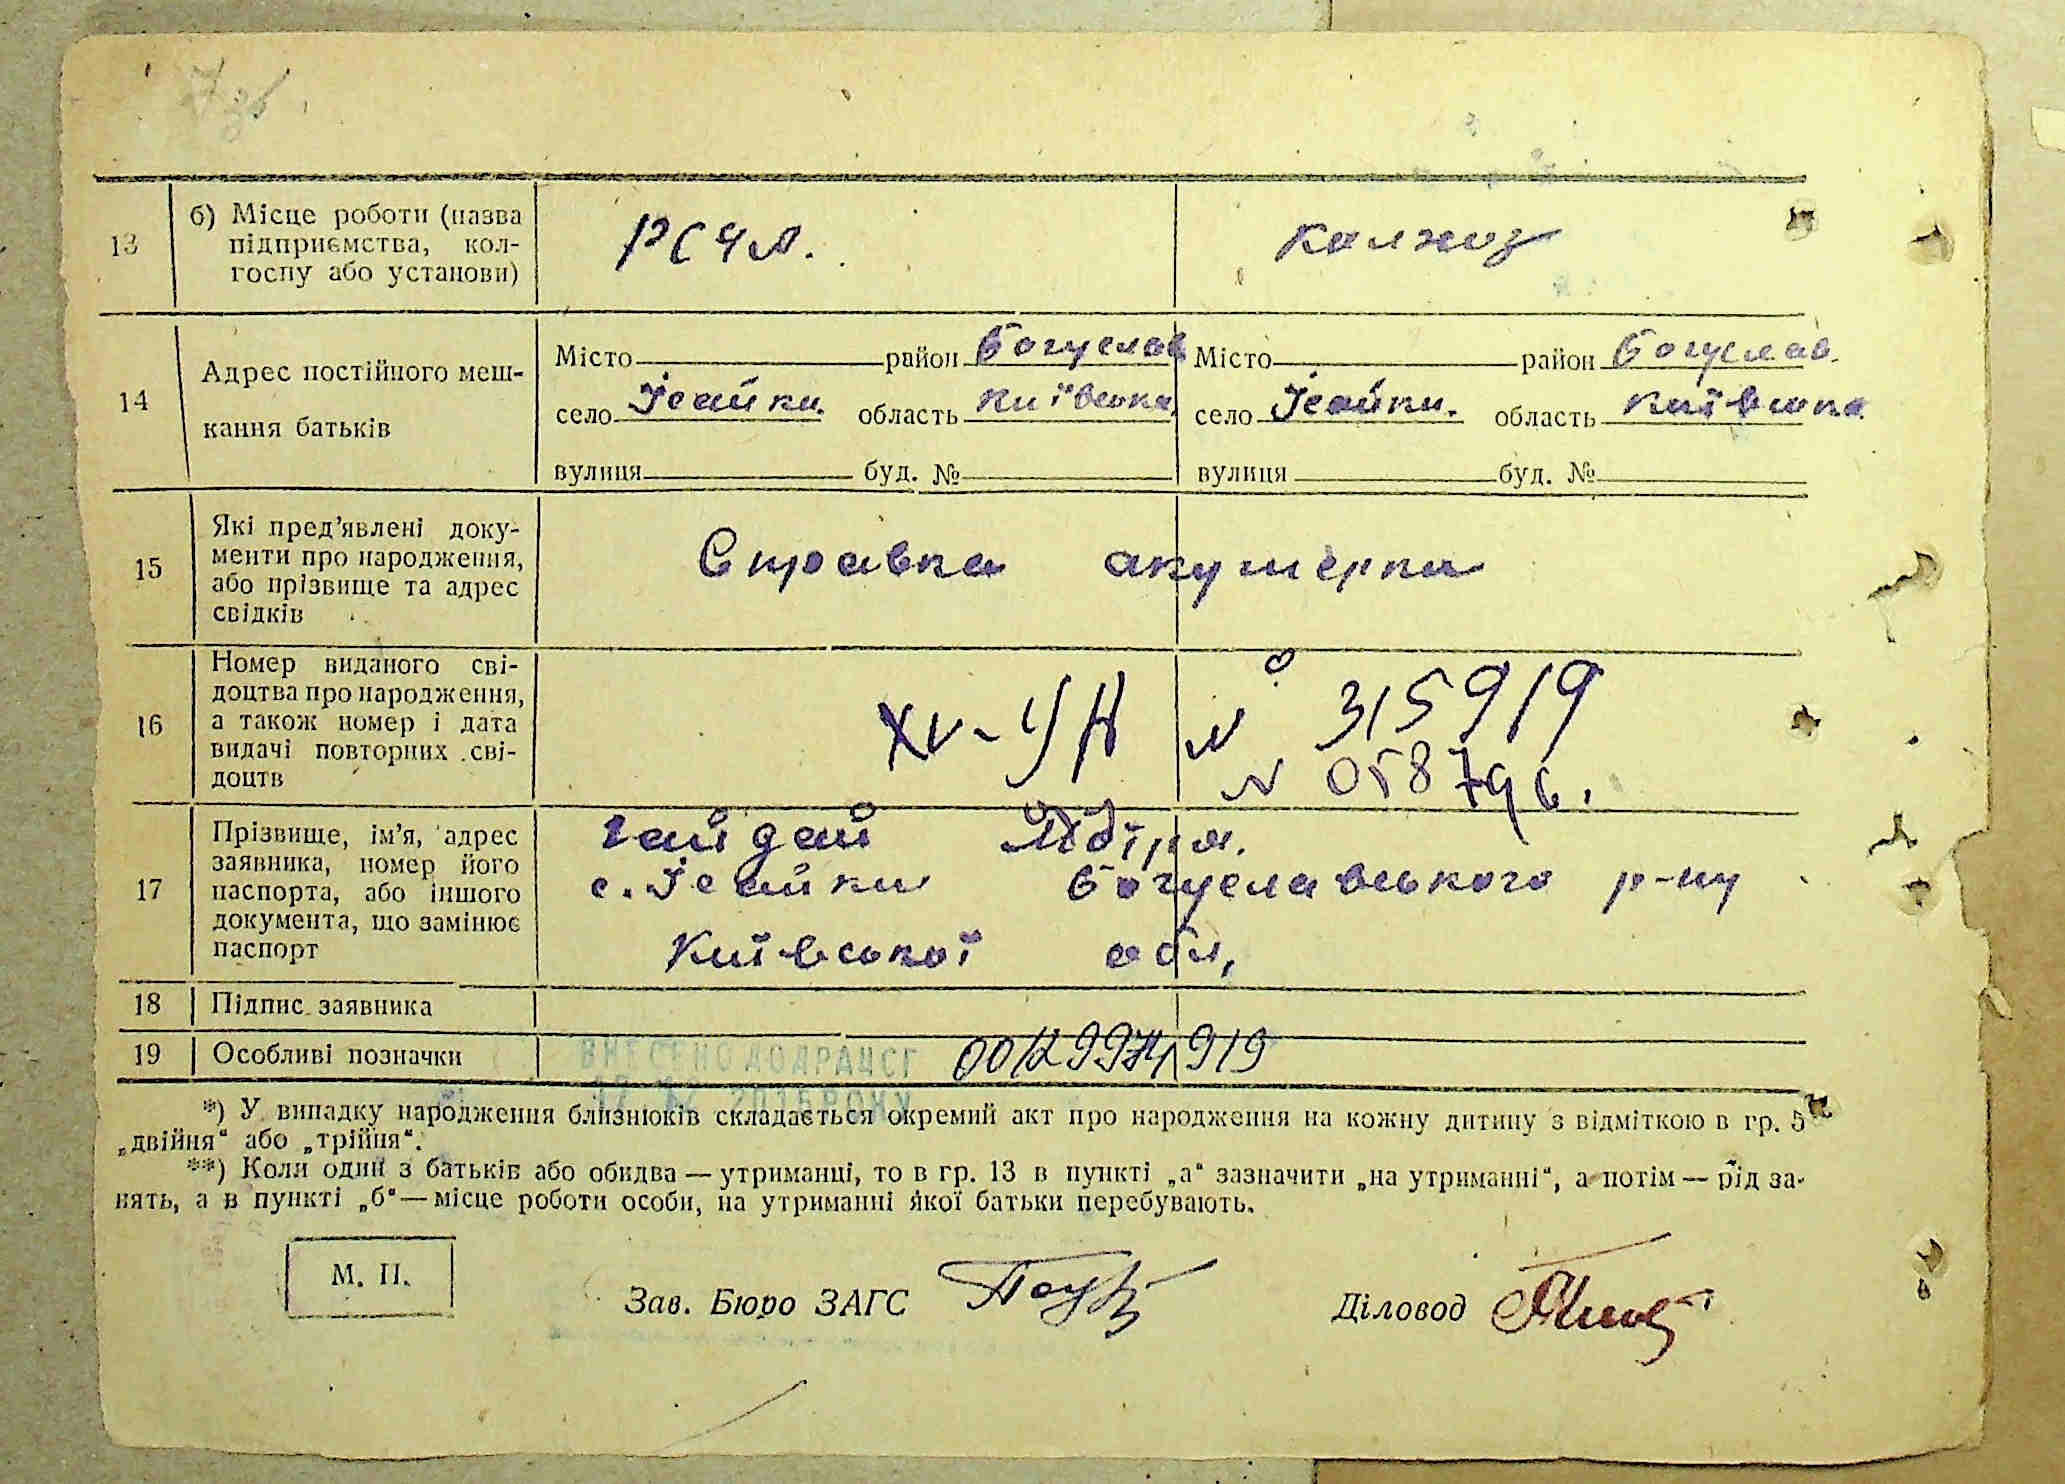 7 зв.
13
б) Місце роботи (назва
підприємства, кол-
госпу або установи)
РСЧА.
колхоз
14
Адрес постійного меш-
кання батьків
Місто район Богуслав
село Ісайки. область Київська
вулиця буд. №
Місто район Богуслав.
село Ісайки. область Київська
вулиця буд. №
15
Які пред'явлені доку-
менти про народження,
або прізвище та адрес
свідків
Справка акушерки
16
Номер виданого сві-
доцтва про народження,
а також номер і дата
видачі повторних сві-
доцтв
XV-УН № 315919
N 058796.
17
Прізвище, ім'я, адрес
заявника, номер його
паспорта, або іншого
документа, що замінює
паспорт
Гайдай
с. Ісайки Богуславського р-ну
Київської обл,
18
Підпис заявника
19
Особливі позначки
ВНЕСЕНО ДО ДРАЦСГ
2016 РОКУ
00129974919
*) У випадку народження близнюків складається окремий акт про народження на кожну дитину з відміткою в гр. 5
„двійня“ або „трійня“.
**) Коли один з батьків або обидва — утриманці, то в гр. 13 в пункті „а“ зазначити „на утриманні“, а потім — рід за-
нять, а в пункті „б“ — місце роботи особи, на утриманні якої батьки перебувають.
М. П.
Зав. Бюро ЗАГС
Діловод